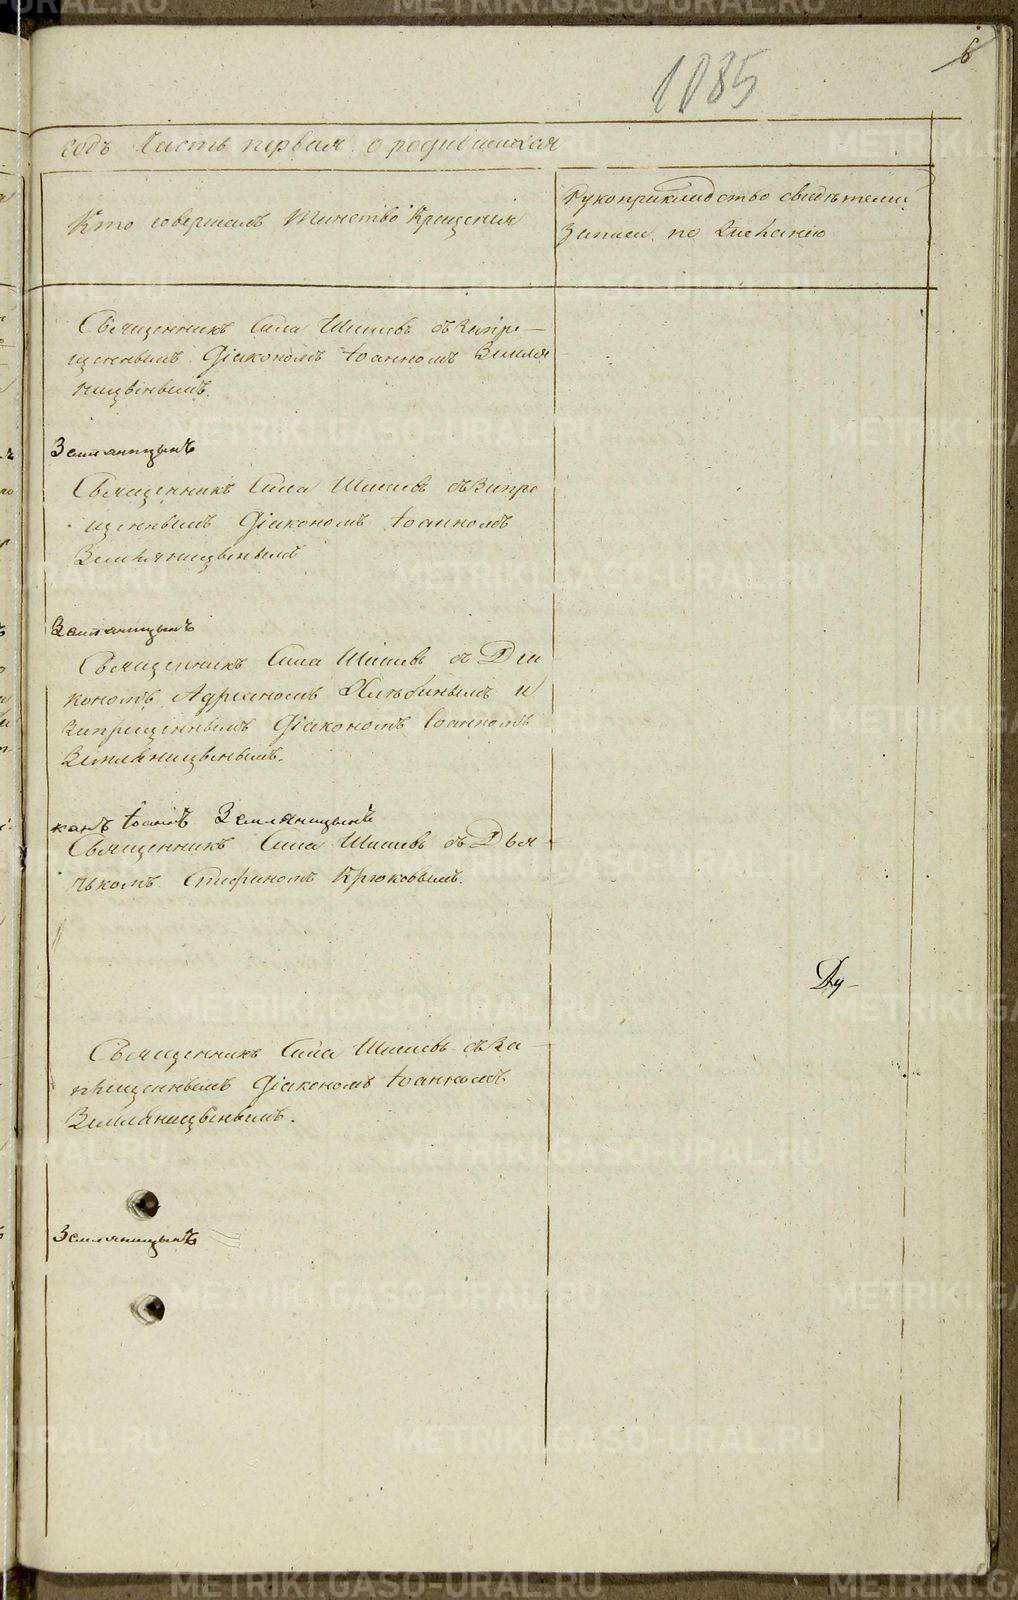 6
1085
годъ Часть первая о родившихся
Кто совершалъ Таинство Крещения
Рукоприкладство свидѣтелей
записи по желанію
Священникъ Сила Шишевъ съ запре-
щеннымъ Діакономъ Іоанномъ Земля
ницынымъ.
Земляницынъ
Священникъ Сила Шишевъ съ запре
щеннымъ Діакономъ Іоанномъ
Земляницынымъ
Земляницынъ
Священникъ Сила Шишевъ съ Диа
кономъ Адрианомъ Хлѣбинымъ и
запрещеннымъ Діакономъ Іоанномъ
Земляницынымъ.
канъ Іоаннъ Земляницынъ
Священникъ Сила Шишевъ съ Дья
чькомъ Стефаномъ Крюковымъ.
Ду-
Священникъ Сила Шишевъ съ за-
прещеннымъ Діакономъ Іоанномъ
Земляницынымъ.
Земляницынъ
METRIKI.GASO-URAL.RU